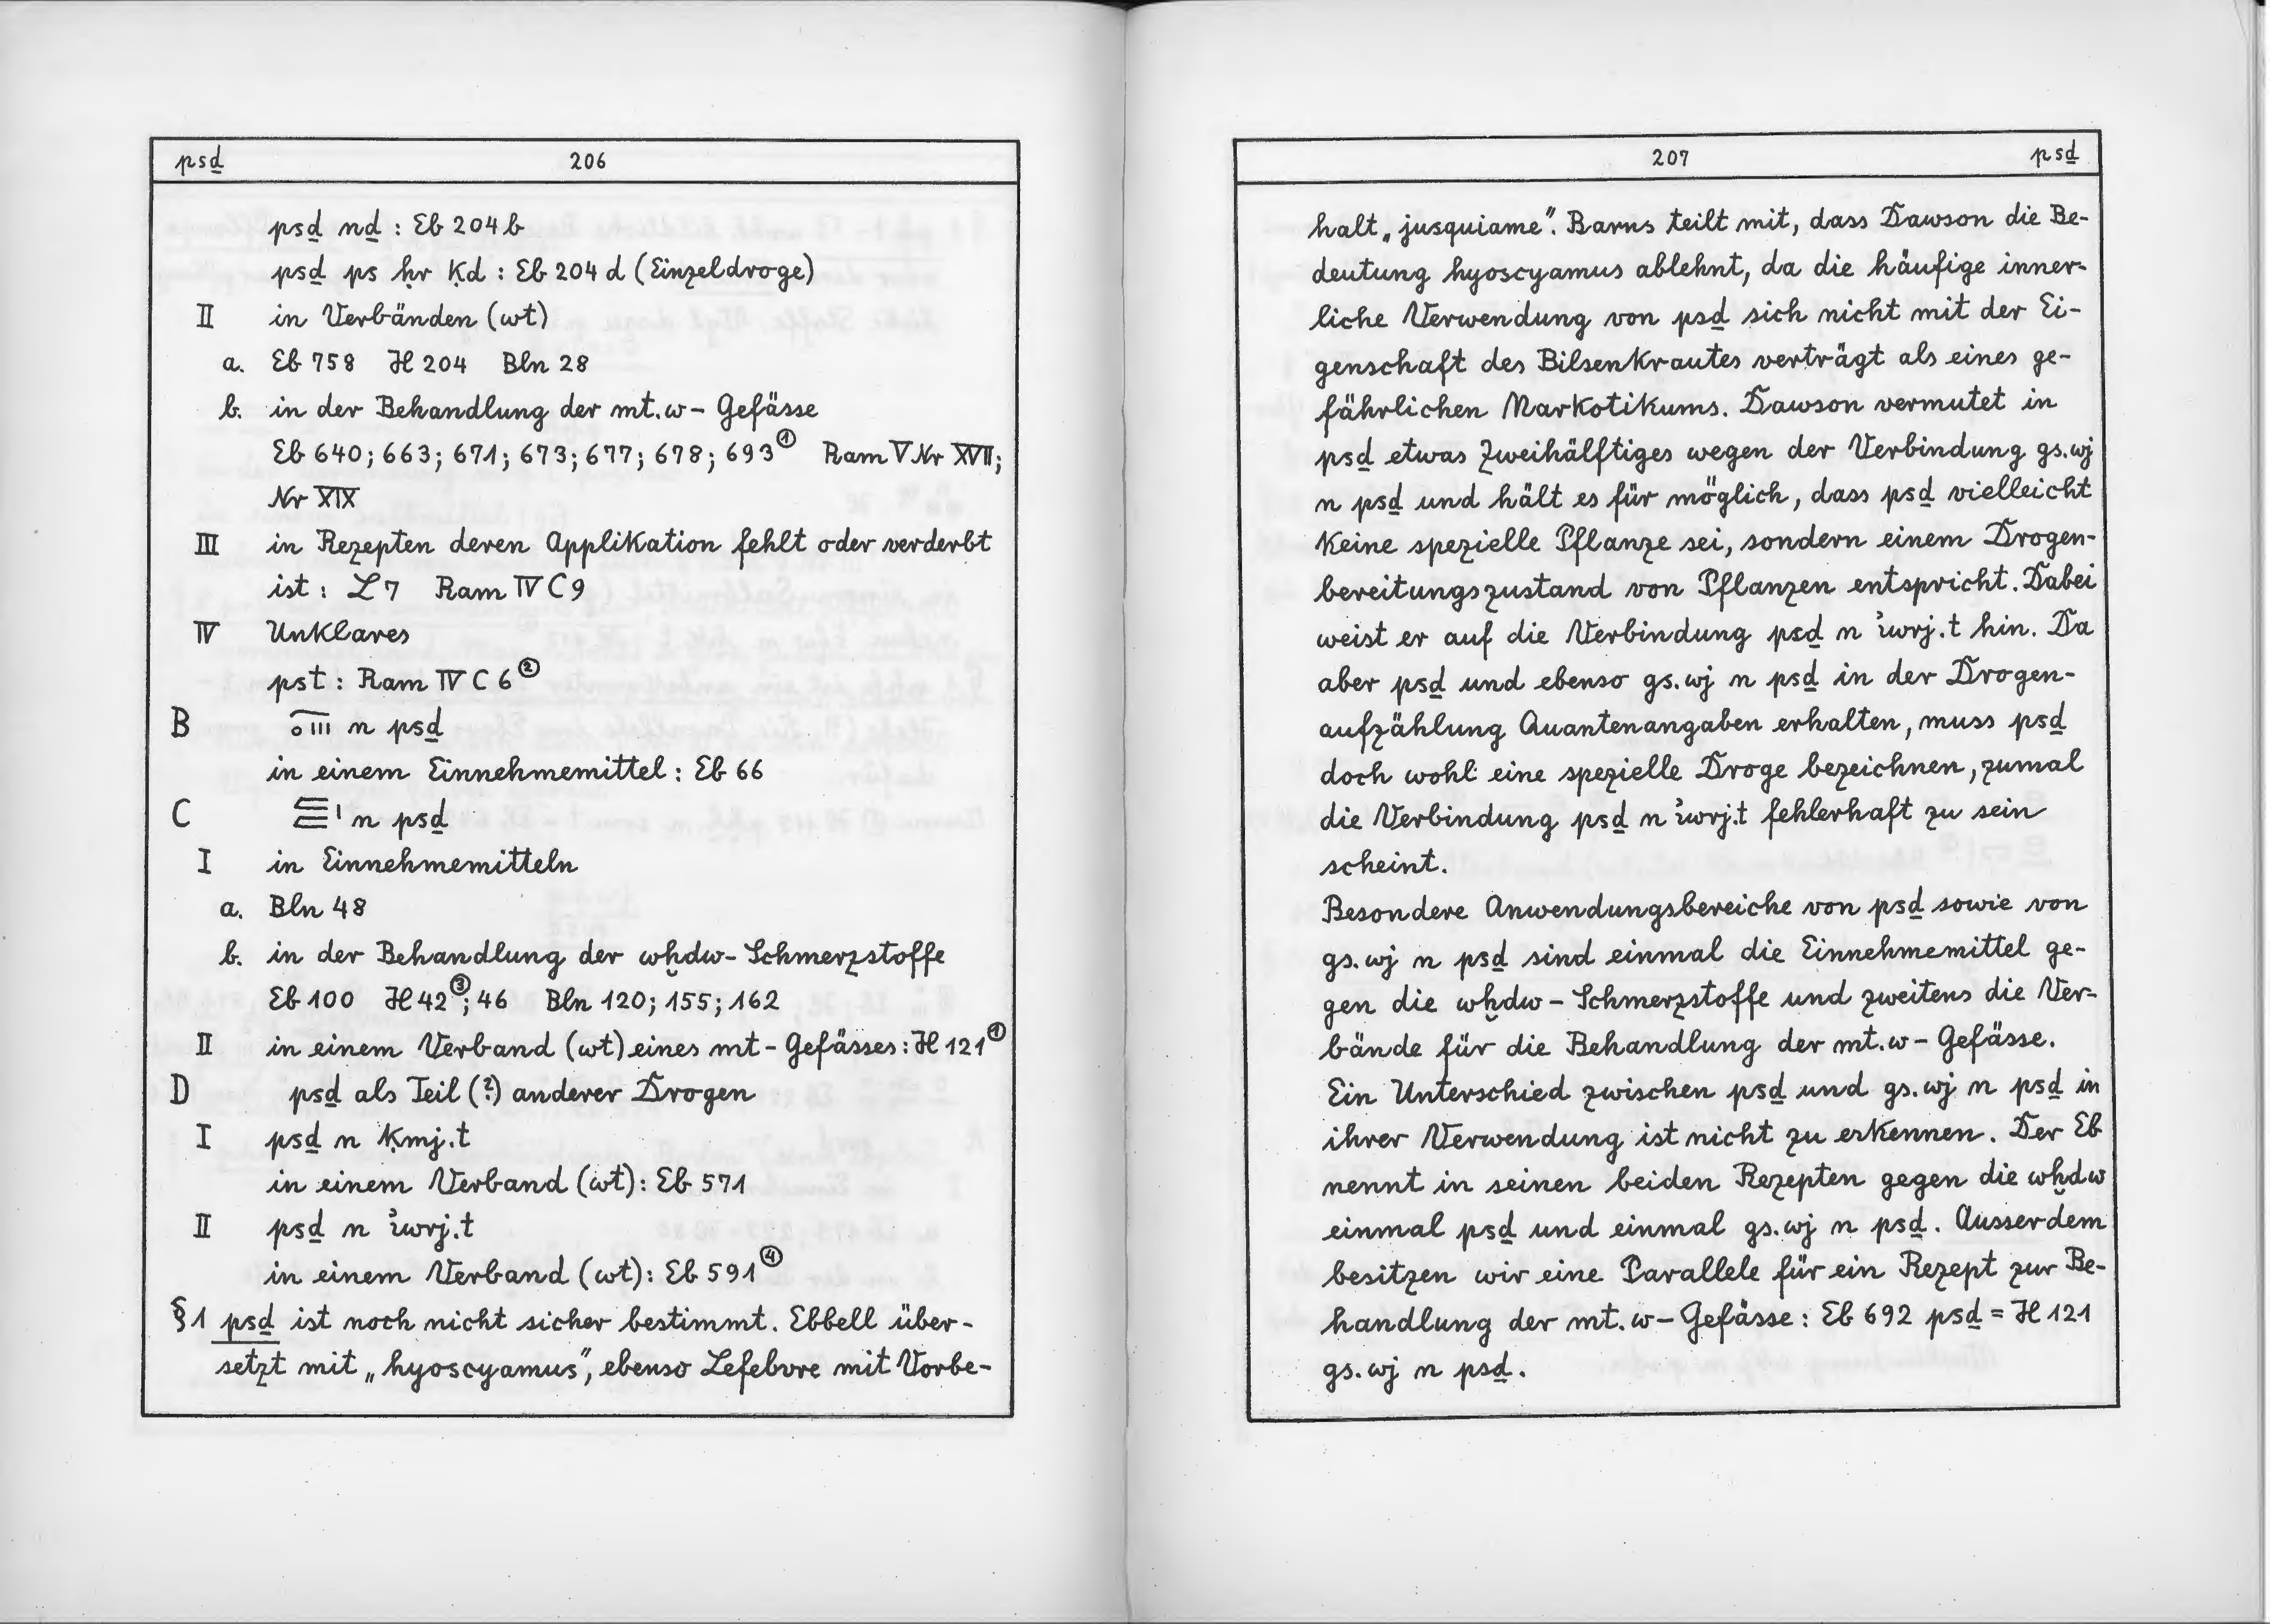 psḏ 206
psḏ nḏ : Eb 204 b
psḏ ps ḥr ḳd : Eb 204 d (Einzeldroge)
II in Verbänden (wt)
a. Eb 758 H 204 Bln 28
b. in der Behandlung der mt.w - Gefässe
Eb 640; 663; 671; 673; 677; 678; 693① Ram V Nr XVII;
Nr XIX
III in Rezepten deren Applikation fehlt oder verderbt
ist : L 7 Ram IV C 9
IV Unklares
pst : Ram IV C 6②
B n psḏ
in einem Einnehmemittel : Eb 66
C n psḏ
I in Einnehmemitteln
a. Bln 48
b. in der Behandlung der wḫdw - Schmerzstoffe
Eb 100 H 42③; 46 Bln 120; 155; 162
II in einem Verband (wt) eines mt - Gefässes : H 121①
D psḏ als Teil (?) anderer Drogen
I psḏ n ḳmj.t
in einem Verband (wt) : Eb 571
II psḏ n ꞽwrj.t
in einem Verband (wt) : Eb 591④
§1 psḏ ist noch nicht sicher bestimmt. Ebbell über-
setzt mit „hyoscyamus", ebenso Lefebvre mit Vorbe-
207 psḏ
halt „jusquiame". Barns teilt mit, dass Dawson die Be-
deutung hyoscyamus ablehnt, da die häufige inner-
liche Verwendung von psḏ sich nicht mit der Ei-
genschaft des Bilsenkrautes verträgt als eines ge-
fährlichen Narkotikums. Dawson vermutet in
psḏ etwas Zweihälftiges wegen der Verbindung gs.wj
n psḏ und hält es für möglich, dass psḏ vielleicht
keine spezielle Pflanze sei, sondern einem Drogen-
bereitungszustand von Pflanzen entspricht. Dabei
weist er auf die Verbindung psḏ n ꞽwrj.t hin. Da
aber psḏ und ebenso gs.wj n psḏ in der Drogen-
aufzählung Quantenangaben erhalten, muss psḏ
doch wohl eine spezielle Droge bezeichnen, zumal
die Verbindung psḏ n ꞽwrj.t fehlerhaft zu sein
scheint.
Besondere Anwendungsbereiche von psḏ sowie von
gs.wj n psḏ sind einmal die Einnehmemittel ge-
gen die wḫdw - Schmerzstoffe und zweitens die Ver-
bände für die Behandlung der mt.w - Gefässe.
Ein Unterschied zwischen psḏ und gs.wj n psḏ in
ihrer Verwendung ist nicht zu erkennen. Der Eb
nennt in seinen beiden Rezepten gegen die wḫdw
einmal psḏ und einmal gs.wj n psḏ. Ausserdem
besitzen wir eine Parallele für ein Rezept zur Be-
handlung der mt.w - Gefässe : Eb 692 psḏ = H 121
gs.wj n psḏ.